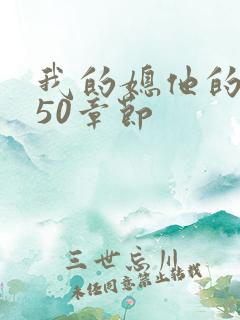 我的媳他的
50章节
三世忘川
未经同意禁止转载